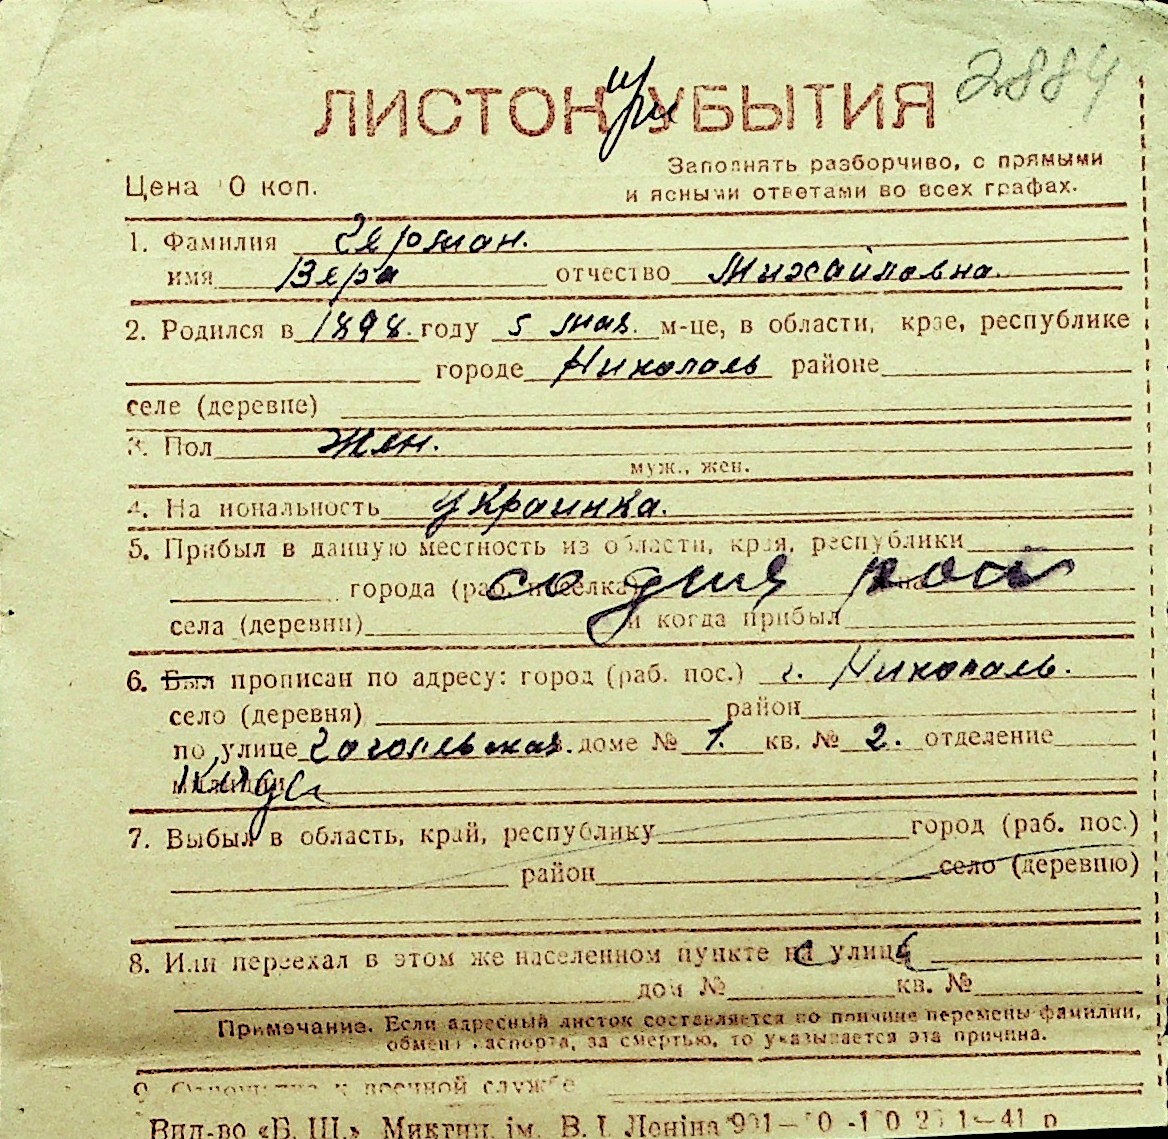 2884
ЛИСТОК при УБЫТИЯ
Заполнять разборчиво, с прямыми
Цена 0 коп. и ясными ответами во всех графах.
1. Фамилия Герман.
имя Вера отчество Михайловна.
2. Родился в 1898. году 5 мая. м-це, в области, крае, республике
городе Никополь районе
селе (деревне)
3. Пол жен.
муж., жен.
4. Национальность украинка.
5. Прибыл в данную местность из области, края, республики
города (раб. поселка) со дня рож
села (деревни) и когда прибыл
6. Был прописан по адресу: город (раб. пос.) г. Никополь.
село (деревня) район
по улице Гогольская. доме № 1. кв. № 2. отделение
милиции
7. Выбыл в область, край, республику город (раб. пос.)
район село (деревню)
8. Или переехал в этом же населенном пункте на с улицы
дом № кв. №
Примечание. Если адресный листок составляется по причине перемены фамилии,
обмен паспорта, за смертью, то указывается эта причина.
9. Отношение к военной службе
Вид-во «Б. Ш.» Микгин. ім. В. І. Леніна